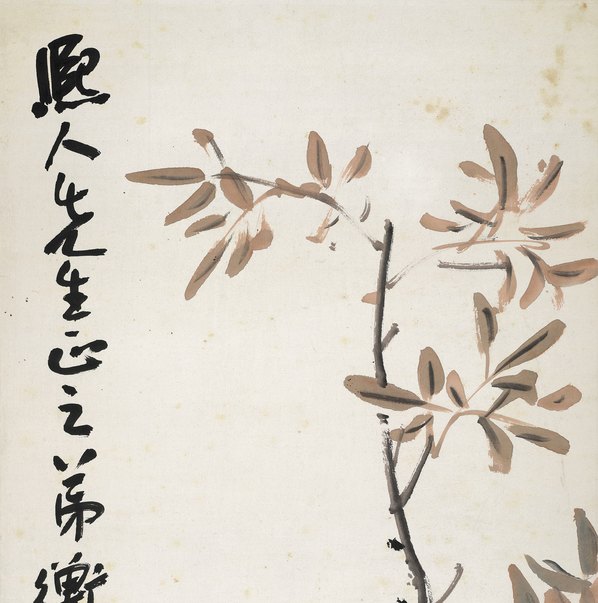 熙人先生正之弟衡